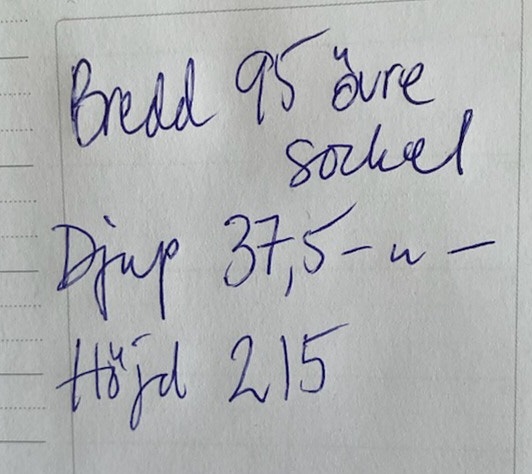 Bredd 95 övre
sockel
Djup 37,5 – " –
Höjd 215